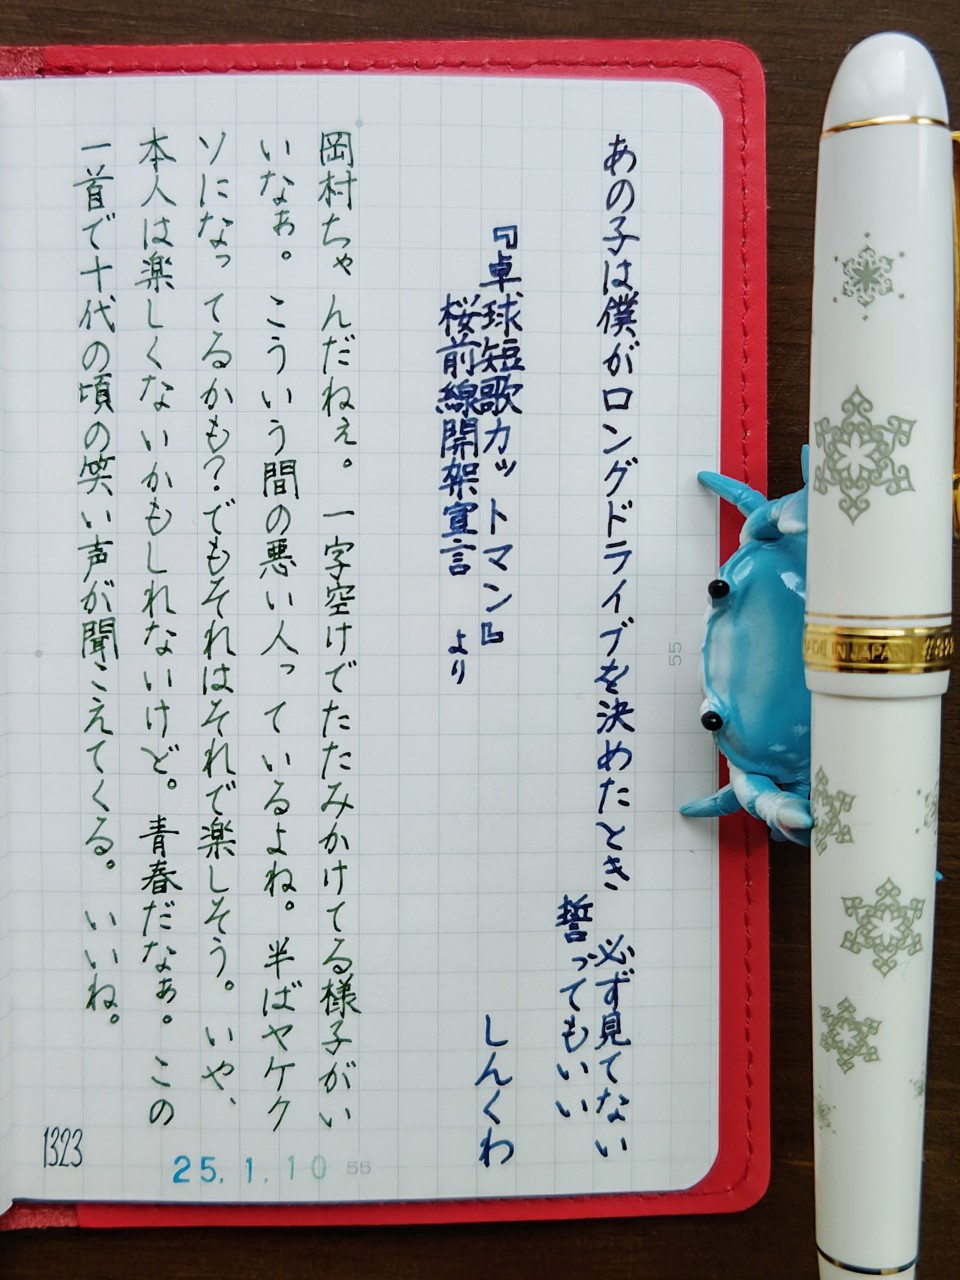 あの子は僕がロングドライブを決めたとき　必ず見てない
誓ってもいい
『卓球短歌カットマン』
しんくわ
桜前線開架宣言　より
岡村ちゃんだねぇ。一字空けでたたみかけてる様子がい
いなぁ。こういう間の悪い人っているよね。半ばヤケク
ソになってるかも？でもそれはそれで楽しそう。いや、
本人は楽しくないかもしれないけど。青春だなぁ。この
一首で十代の頃の笑い声が聞こえてくる。いいね。
1323
25.1.10
55
55
MADE IN JAPAN